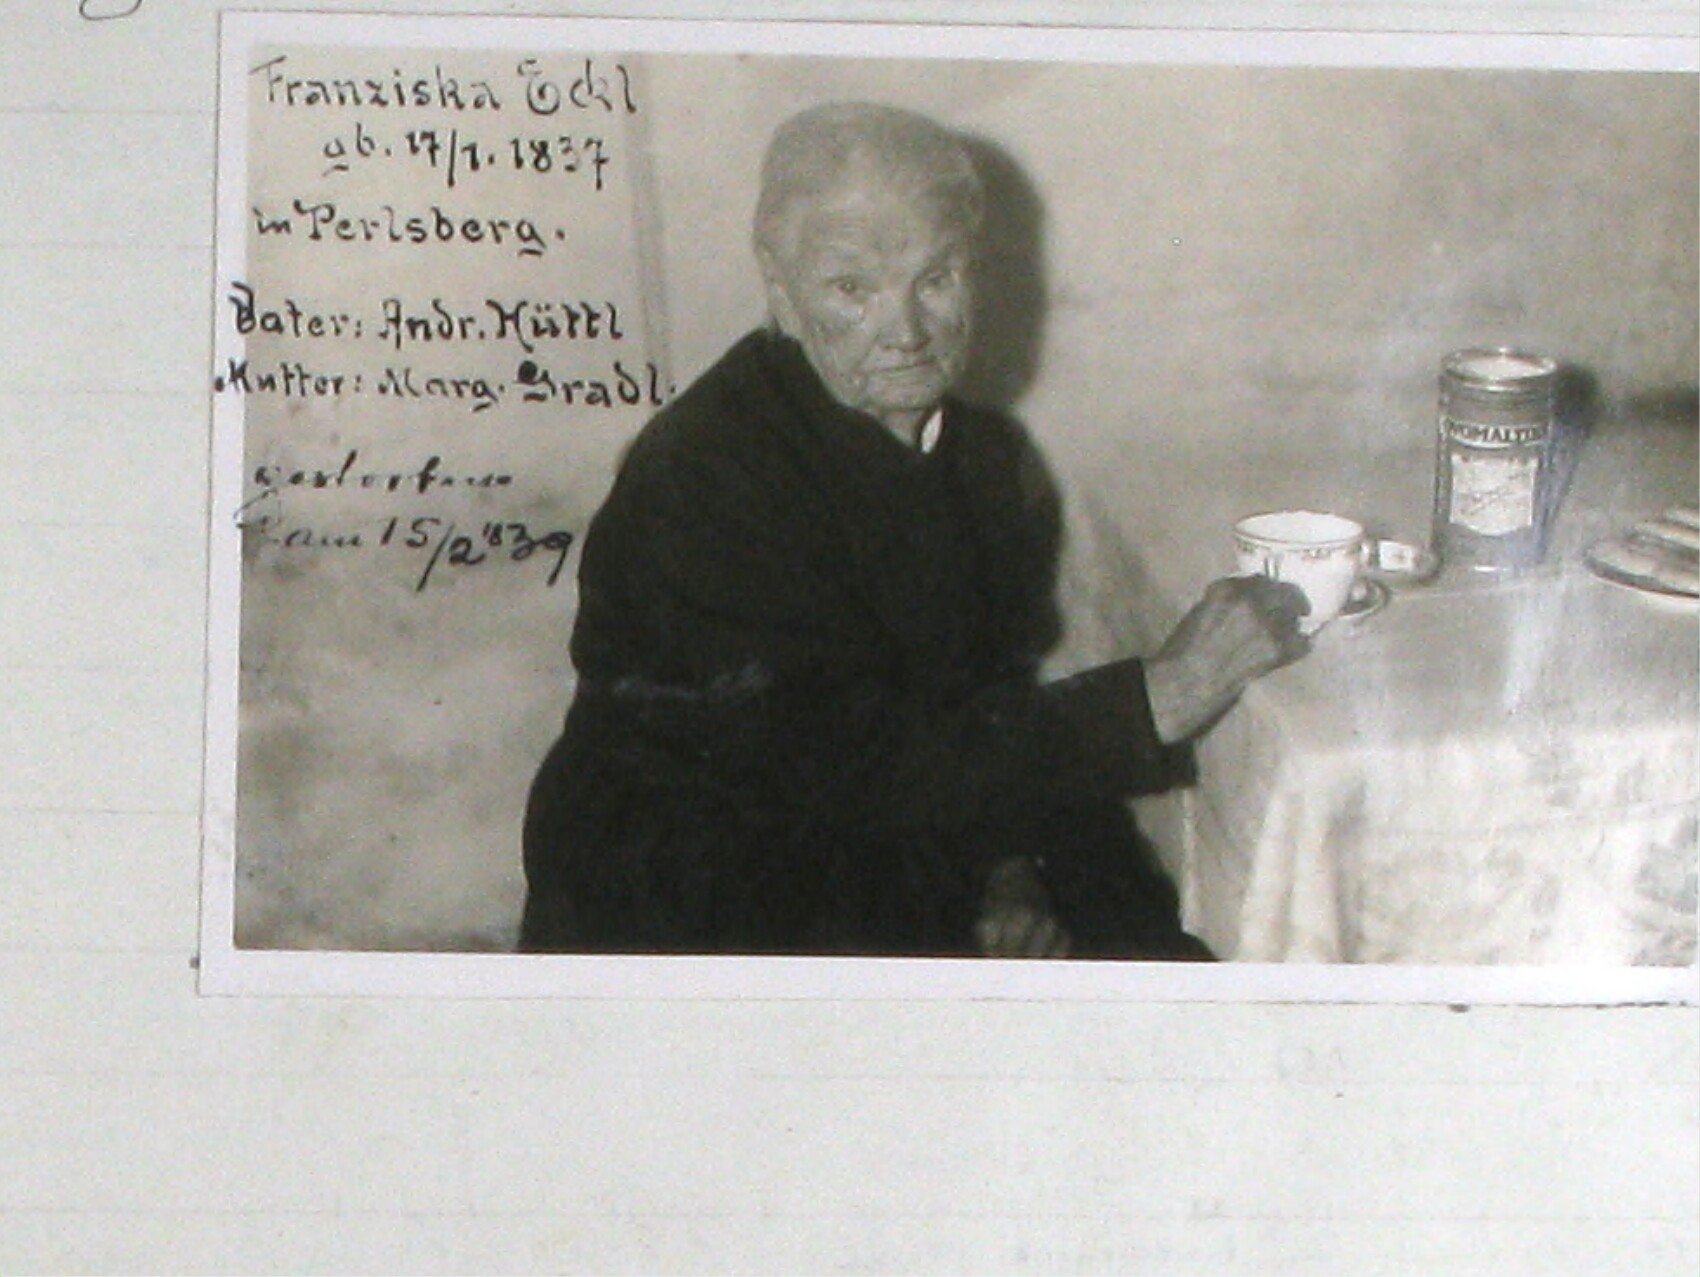 Franziska Eckl
gb. 17/1. 1837
in Perlsberg.
Vater: Andr. Hüttl
Mutter: Marg. Gradl.
gestorben
am 15/2 1839
WOMALTIN